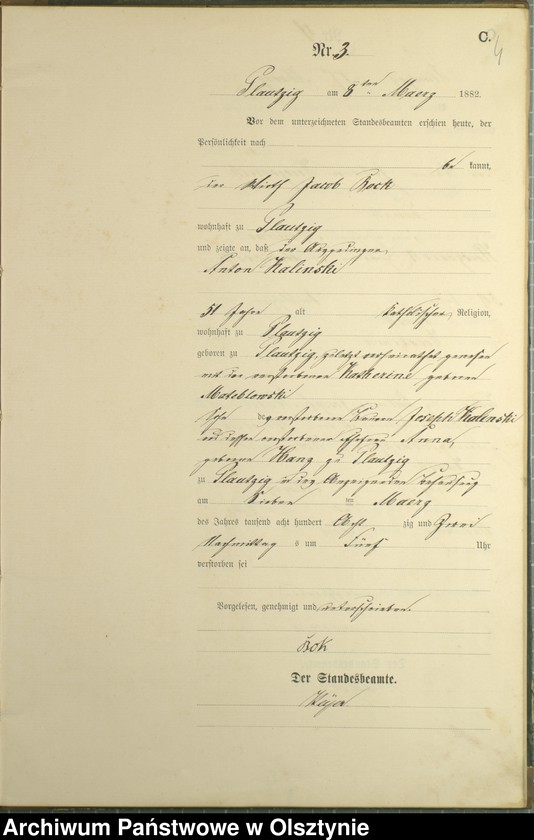 C.
4
Nr. 3.
Plautzig am 8ten Maerz 1882.
Vor dem unterzeichneten Standesbeamten erschien heute, der
Persönlichkeit nach
be kannt,
der Wirth Jacob Bock
wohnhaft zu Plautzig
und zeigte an, daß der
Anton Kalinski
51 Jahre alt katholischer Religion,
wohnhaft zu Plautzig
geboren zu Plautzig, zuletzt verheirathet gewesen
mit der verstorbenen Katherine geborne
Mateblowski
Sohn des verstorbenen Joseph Kalinski
und dessen verstorbenen Ehefrau Anna,
geborene Hanz zu Plautzig
zu Plautzig in des Behausung
am Sieben ten Maerz
des Jahres tausend acht hundert Acht zig und Zwei
Nachmittag s um Fünf Uhr
verstorben sei
Vorgelesen, genehmigt und unterschrieben.
Bock
Der Standesbeamte.
Archiwum Państwowe w Olsztynie